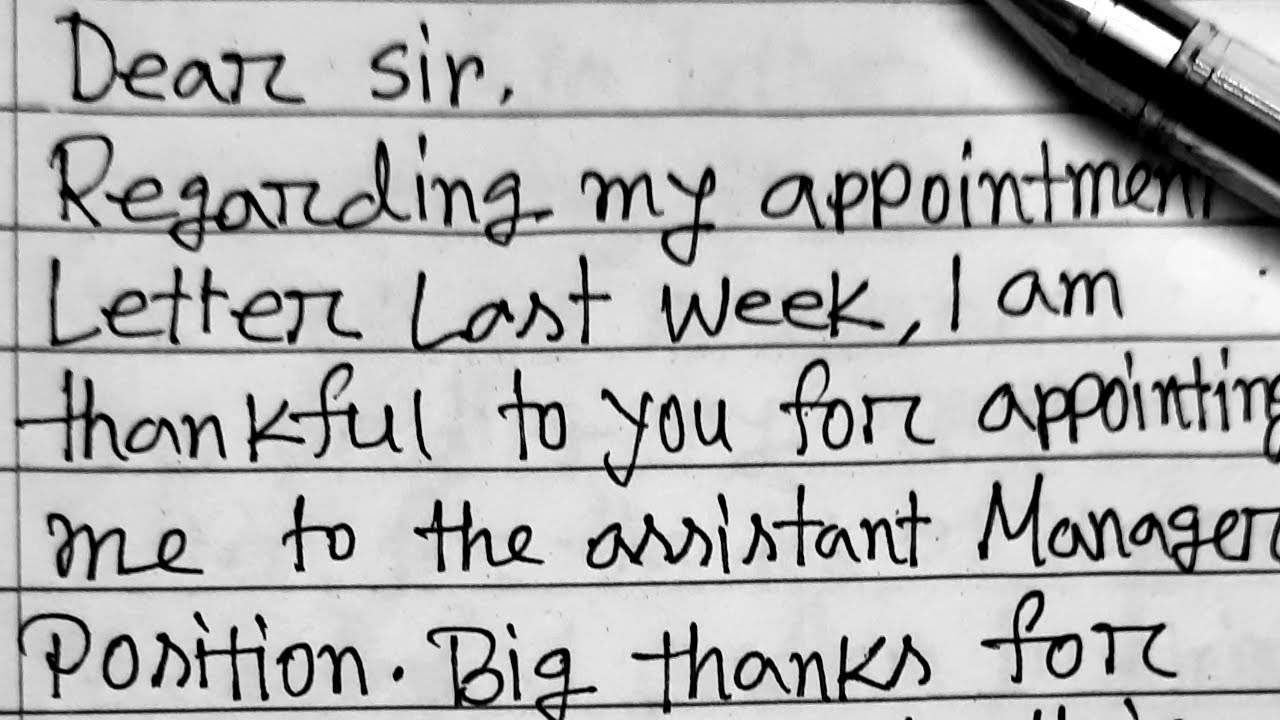 Dear sir,
Regarding my appointment
Letter Last week, I am
thankful to you for appointing
me to the assistant Manager
Position. Big thanks for